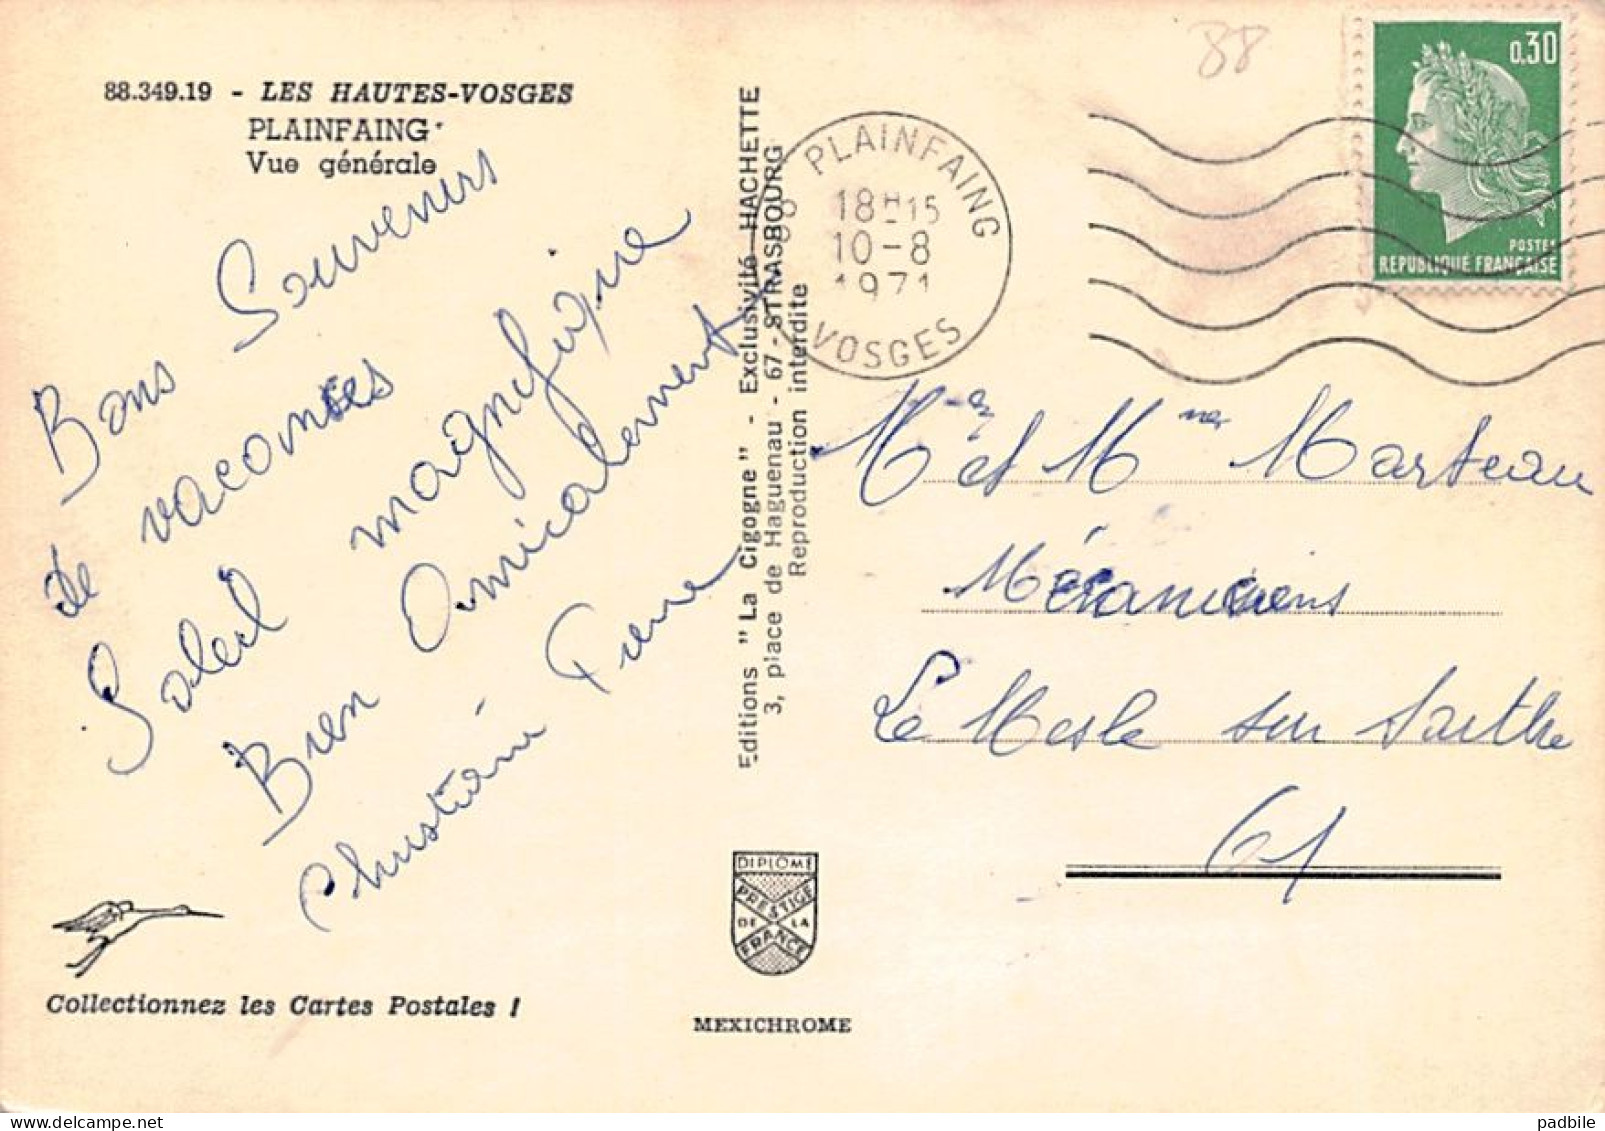 88.349.19 - LES HAUTES-VOSGES
PLAINFAING
Vue générale
Bons Souvenirs
de vacances
Soleil magnifique
Bien Amicalement
Christiane Pierre
Collectionnez les Cartes Postales !
Editions "La Cigogne" - Exclusivité HACHETTE
3, place de Haguenau - 67 - STRASBOURG
Reproduction interdite
DIPLOME
PRESTIGE
DE LA
FRANCE
MEXICHROME
88
88 PLAINFAING
18H15
10-8
1971
VOSGES
0,30
POSTES
REPUBLIQUE FRANÇAISE
Mr et Mmes Marteau
Mécaniciens
Le Mesle sur Sarthe
61
padbile